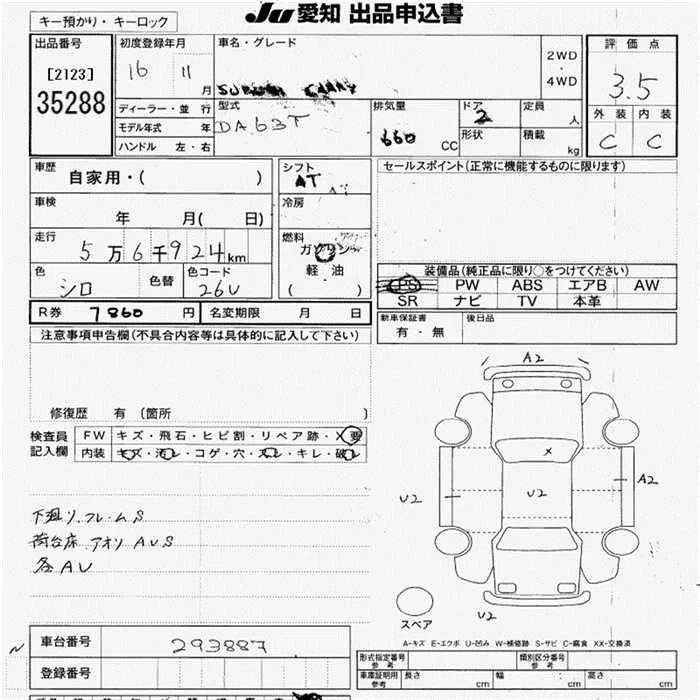 JU 愛知 出品申込書
キー預かり・キーロック
出品番号
[2123]
35288
初度登録年月
16 11 月
ディーラー・並行
モデル年式 年
ハンドル 左・右
車名・グレード
SUBARU CARRY
2WD
・
4WD
型式
DA63T
排気量
660 CC
ドア
2
形状
定員
人
積載
kg
評価点
3.5
外装 内装
C C
車歴
自家用・( )
シフト
AT
車検
年 月( 日)
冷房
走行
5万6千924km
燃料
ガソリン
軽油
( )
色
シロ
色替
色コード
26U
R券 7860 円 名変期限 月 日
セールスポイント(正常に機能するものに限ります)
装備品(純正品に限り○をつけてください)
PS PW ABS エアB AW
SR ナビ TV 本革
新車保証書
有・無
後日品
注意事項申告欄(不具合内容等は具体的に記入して下さい)
修復歴 有 〔箇所 〕
検査員
記入欄
FW キズ・飛石・ヒビ割・リペア跡・X要
内装 キズ・汚レ・コゲ・穴・スレ・キレ・破レ
下廻リ.フレームS
荷台床 アオリ AUS
各AU
A2
U2
U2
A2
U2
スペア
A-キズ E-エクボ U-凹み W-補修跡 S-サビ C-腐食 XX-交換済
車台番号 293887
登録番号
形式指定番号
参考
類別区分番号
参考
車庫証明用
参考
長さ cm 幅 cm 高さ cm